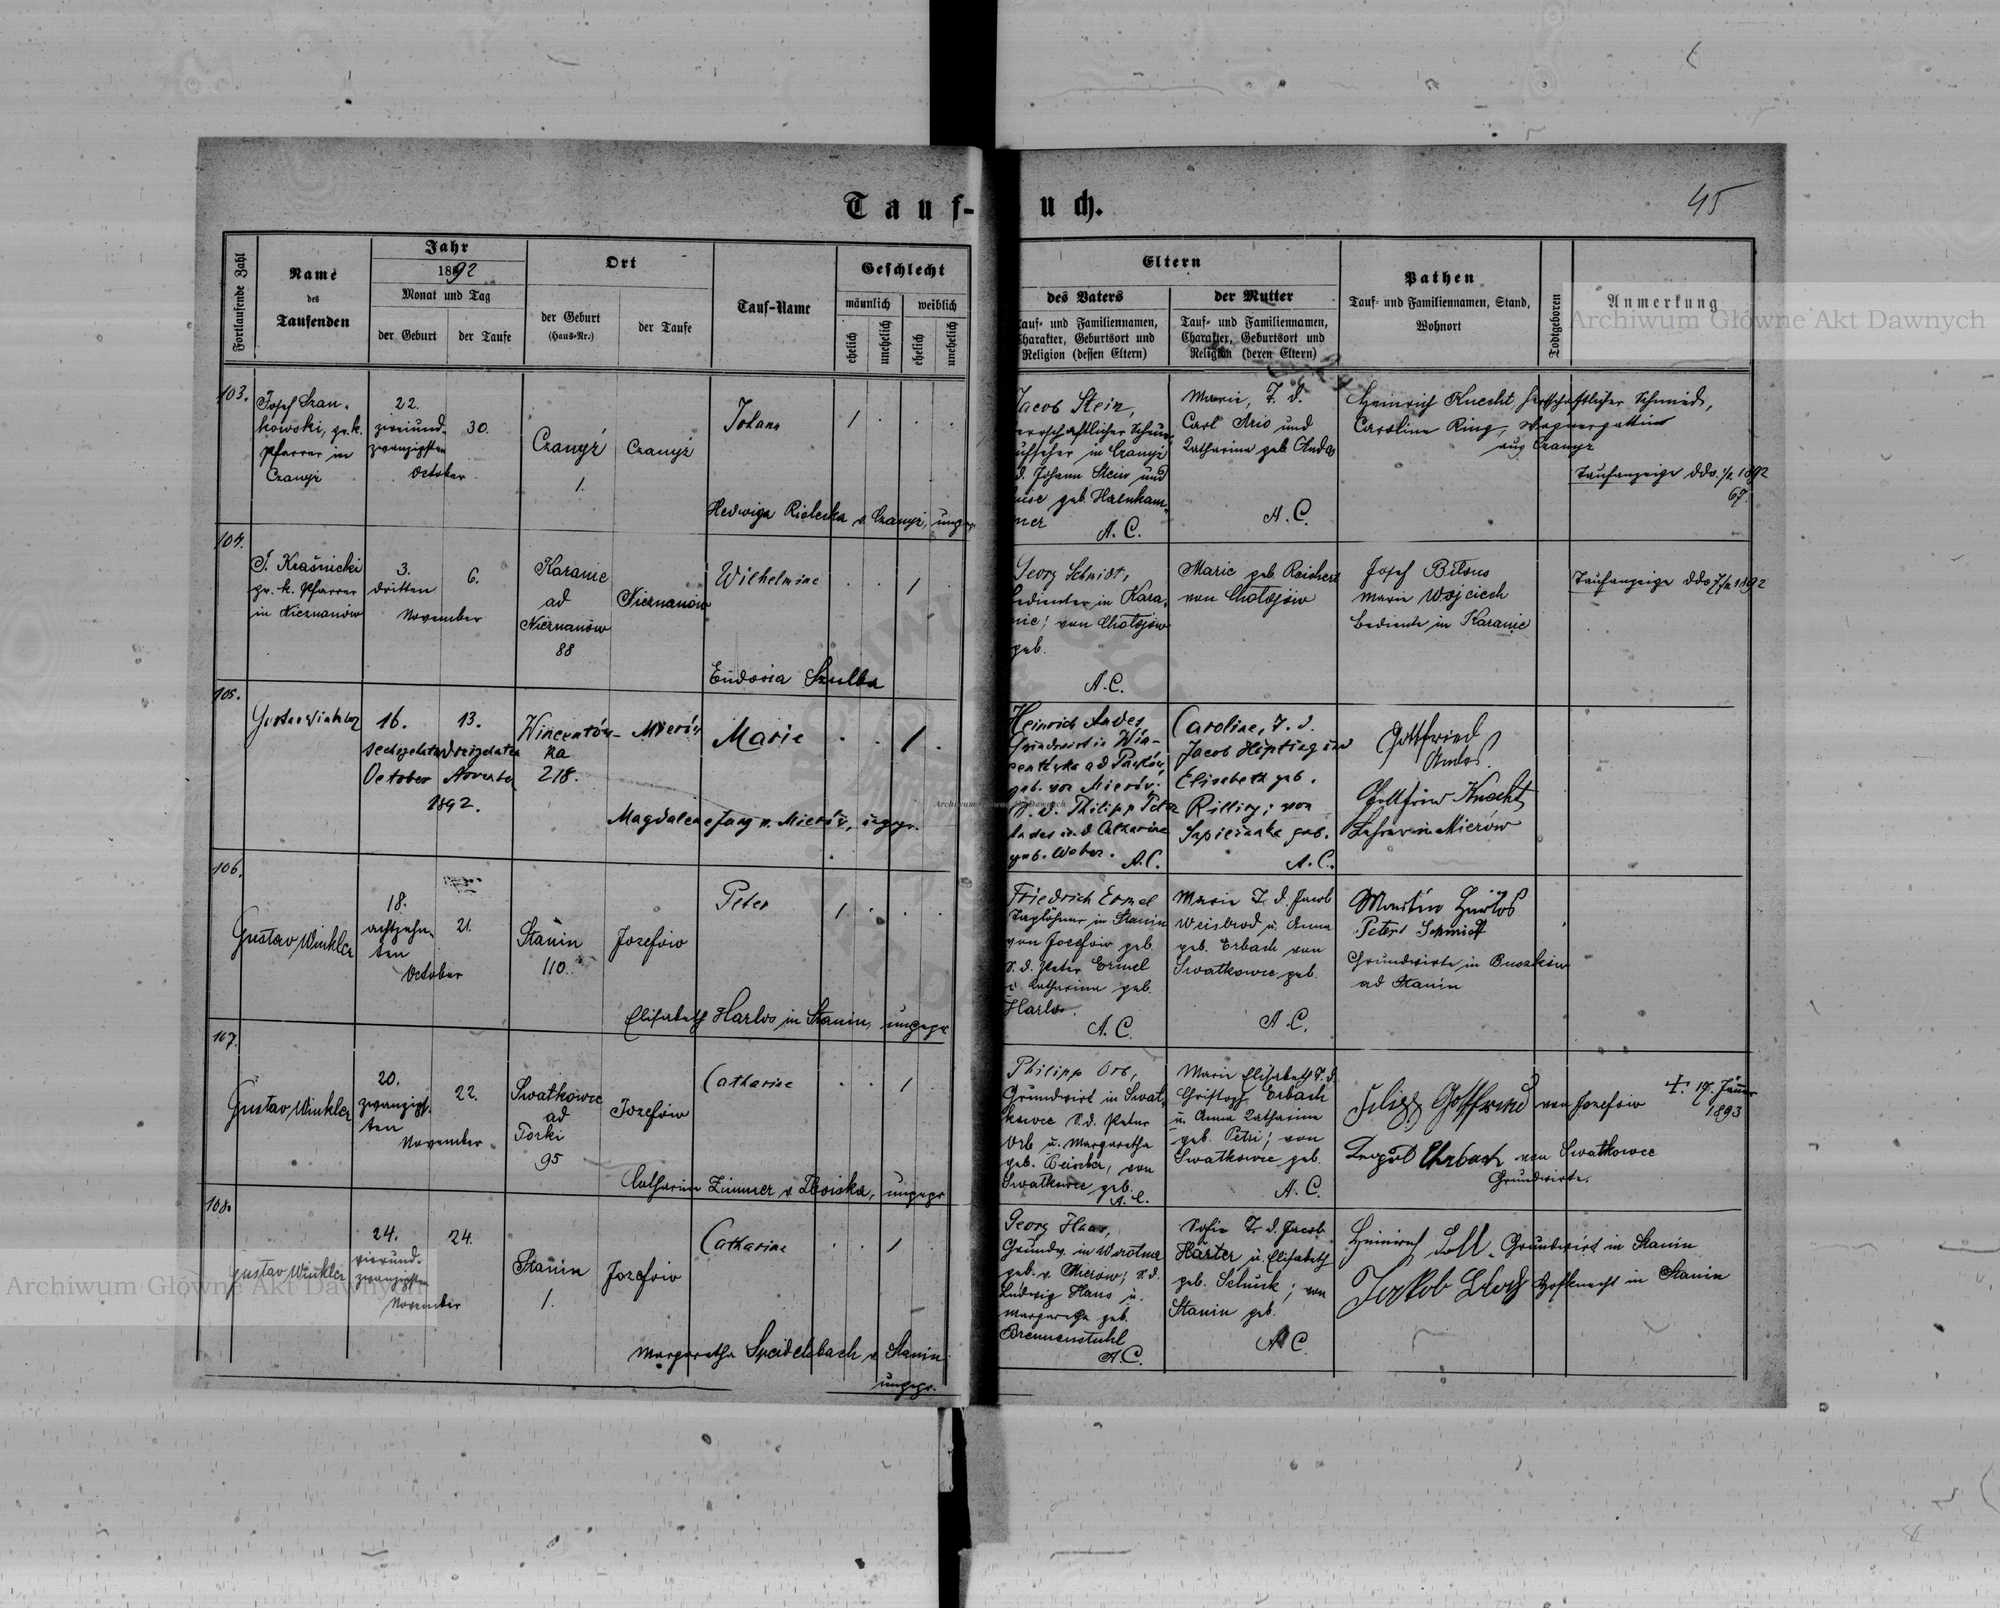 Tauf-
uch.
45
Fortlaufende Zahl
Name
des
Taufenden
Jahr
1892
Monat und Tag
der Geburt
der Taufe
Ort
der Geburt
(Haus-Nr.)
der Taufe
Tauf-Name
Geschlecht
männlich
weiblich
ehelich
unehelich
ehelich
unehelich
Eltern
des Vaters
Tauf- und Familiennamen,
Charakter, Geburtsort und
Religion (dessen Eltern)
der Mutter
Tauf- und Familiennamen,
Charakter, Geburtsort und
Religion (deren Eltern)
Pathen
Tauf- und Familiennamen, Stand,
Wohnort
Todtgeboren
Anmerkung
103.
Josef Szan-
kowski, gr. k.
Pfarrer in
Czanyż
22.
zweiund-
zwanzigsten
October
30.
Czanyż
1.
Czanyż
Johann
1
Hedwiga v. Czanyż, ungepr.
Jacob Stein,
in Czanyż
d. Johann Stein und
geb.
A. C.
Marie, T. d.
Carl Ario und
Katharina geb. Andes
A. C.
Heinrich Knecht, herrschaftlicher Schmied,
Caroline Ring, Wagnergattin
aus Czanyż
Taufanzeige ddo. 1892
67.
104.
J. Kraśnicki
gr. k. Pfarrer
in Nieznanów
3.
dritten
November
6.
Karanie
ad
Nieznanów
88
Nieznanów
Wilhelmine
1
Eudoxia Szulba
Georg Schmidt,
Bedienter in Kara-
nie; von Chołojów
geb.
A. C.
Marie geb. Reichert
von Chołojów
Josef Bilous
Marie Wojciech
Bediente in Karanie
Taufanzeige ddo 1892
105.
Gustav Winkler
16.
sechzehnten
October
13.
dreizehnten
November
1892.
Wincentów-
ka
218.
Mierów
Marie
1
Magdalene Jung v. Mierów, ungepr.
Heinrich Andes,
Grundwirt in Win-
centówka ad Pawłów,
geb. von Mierów;
S. d. Philipp Peter
Andes u. d. Catharine
geb. Weber.
A. C.
Caroline, T. d.
Jacob Hepting und
Elisabeth geb.
Rilling; von
Sapieżanka geb.
A. C.
Gottfried
Andes.
Gottfried Knecht
Lehrer in Mierów
106.
Gustav Winkler
18.
achtzehn-
ten
October
21.
Stanin
110.
Józefów
Peter
1
Elisabeth Harlos in Stanin, ungepr.
Friedrich Ermel
Taglöhner in Stanin
von Józefów geb.
S. d. Peter Ermel
u. Katharina geb.
Harlos.
A. C.
Marie T. d. Jacob
Weisbrod u. Anna
geb. Erbach von
Swatkowce geb.
A. C.
Martin Harlos
Peter Schmidt
Grundwirte in Buszków
ad Stanin
107.
Gustav Winkler
20.
zwanzigs-
ten
November
22.
Swatkowce
ad
Torki
95
Józefów
Catharine
1
Catharine Zimmer v. Zboiska, ungepr.
Philipp Orb,
Grundwirt in Swat-
kowce S. d. Peter
Orb u. Margaretha
geb. Beischer, von
Swatkowce geb.
A. C.
Marie Elisabeth T. d.
Christoph Erbach
u. Anna Katharina
geb. Petri; von
Swatkowce geb.
A. C.
Gottfried von Józefów
Leopold Ehrbach von Swatkowce
Grundwirte.
†. 17. Jänner
1893
108.
Gustav Winkler
24.
vierund-
zwanzigsten
November
24.
Stanin
1.
Józefów
Catharine
1
Margaretha Speidelsbach v. Stanin
ungepr.
Georg Haas,
Grundw. in Wołotina
geb. v. Mierów; S. d.
Ludwig Haas u.
Margaretha geb.
Brennenstuhl
A. C.
Sofie T. d. Jacob
Harter u. Elisabeth
geb. Schuck; von
Stanin geb.
A. C.
Heinrich Doll, Grundwirt in Stanin
Jakob Hofknecht in Stanin
Archiwum Główne Akt Dawnych
Archiwum Główne Akt Dawnych
Archiwum Główne Akt Dawnych